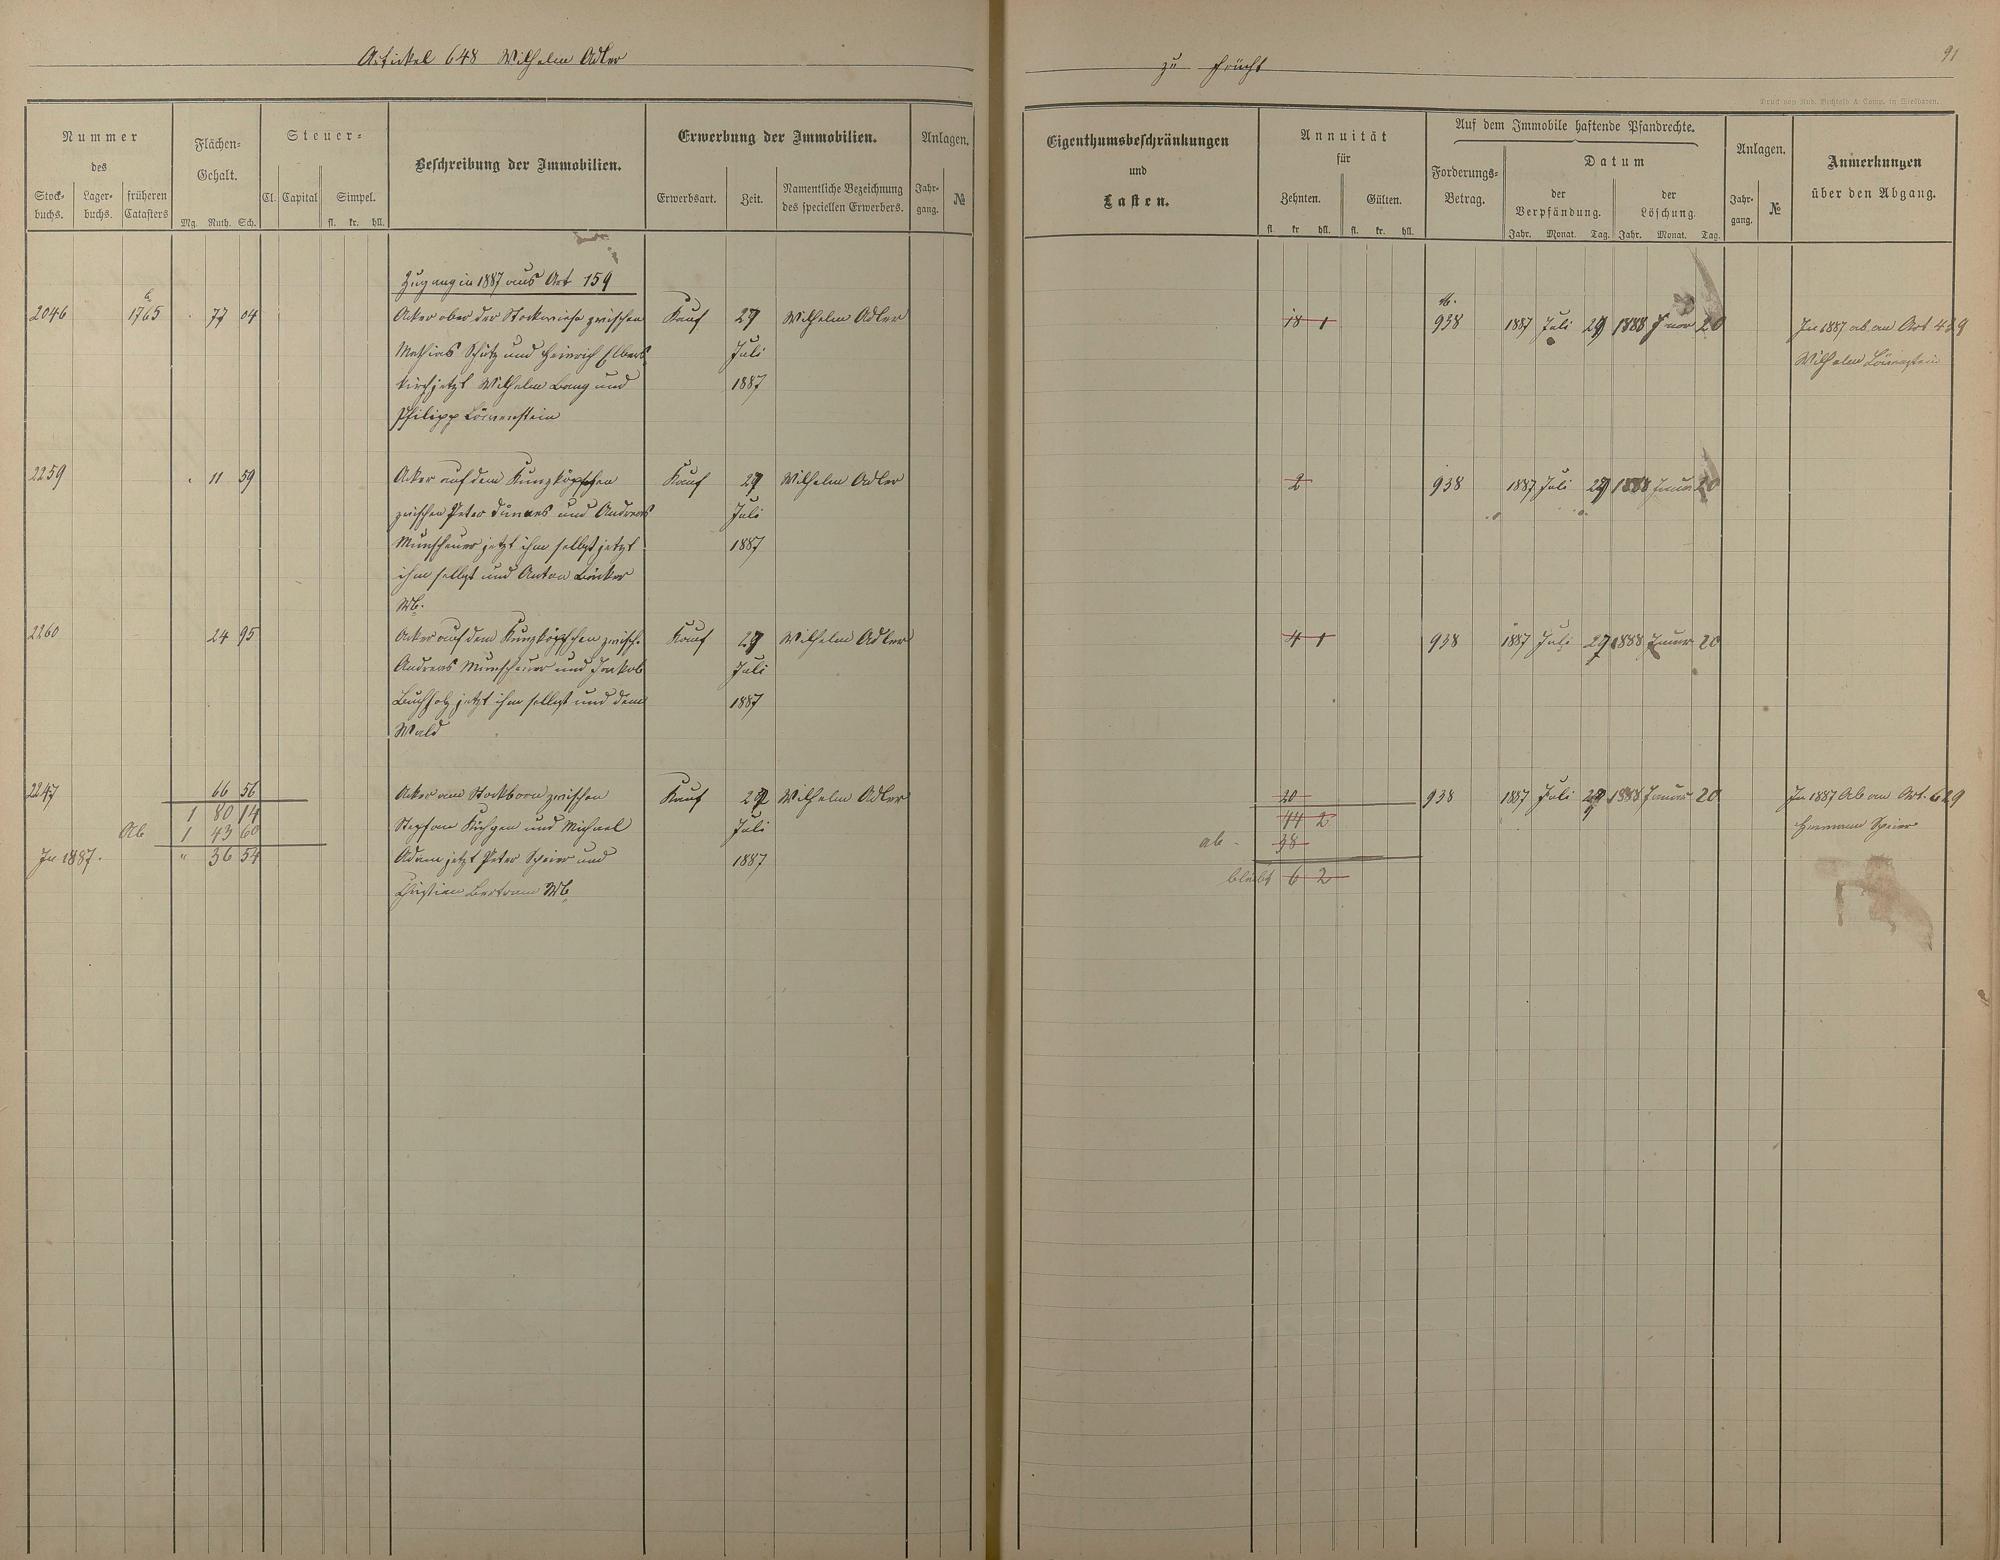 Artikel 648 Wilhelm Adler
zu Frücht
91
Druck von Rud. Bechtold & Comp. in Wiesbaden.
Nummer
des
Stock-
buchs.
Lager-
buchs.
früheren
Catasters
Flächen-
Gehalt.
Mg. Ruth. Sch.
Steuer-
Cl. Capital
Simpel.
fl. kr. hll.
Beschreibung der Immobilien.
Erwerbung der Immobilien.
Erwerbsart.
Zeit.
Namentliche Bezeichnung
des speciellen Erwerbers.
Anlagen.
Jahr-
gang.
№
Eigenthumsbeschränkungen
und
Lasten.
Annuität
für
Zehnten.
fl. kr. hll.
Gülten.
fl. kr. hll.
Auf dem Immobile haftende Pfandrechte.
Forderungs-
Betrag.
Datum
der
Verpfändung.
Jahr. Monat. Tag.
der
Löschung.
Jahr. Monat. Tag.
Anlagen.
Jahr-
gang.
№
Anmerkungen
über den Abgang.
Zugang in 1887 aus Art 159
2046 1765 77 04 Acker ober der Stockwiese zwischen Kauf 27 Wilhelm Adler 18 1 M. 938 1887 Juli 27 1888 Januar 20 In 1887 ab an Art 429
Mathias Schütz und Heinrich Elbert Juli Wilhelm Löwenstein
jetzt Wilhelm Bang und 1887
Philipp Löwenstein
2259 11 59 Acker auf dem Kunzköpfchen Kauf 27 Wilhelm Adler 2 938 1887 Juli 27 1888 Januar 20
zwischen Peter und Andreas Juli
Munscheuer jetzt ihm selbst jetzt 1887
ihm selbst und Anton Bäcker
Wb.
2260 24 95 Acker auf dem Kunzköpfchen zwisch. Kauf 27 Wilhelm Adler 4 1 938 1887 Juli 27 1888 Januar 20
Andreas Munscheuer und Jakob Juli
Buchholz jetzt ihm selbst und dem 1887
Wald
2247 66 56 Acker am Stockborn zwischen Kauf 27 Wilhelm Adler 20 938 1887 Juli 27 1888 Januar 20 In 1887 Ab an Art. 629
1 80 14 Stephan und Michael Juli 44 2 Hermann Speier
Ab 1 43 60
In 1887. " 36 54 Adam jetzt Peter Speier und 1887 ab - 38
Christian Bertram Wb. bleibt 6 2